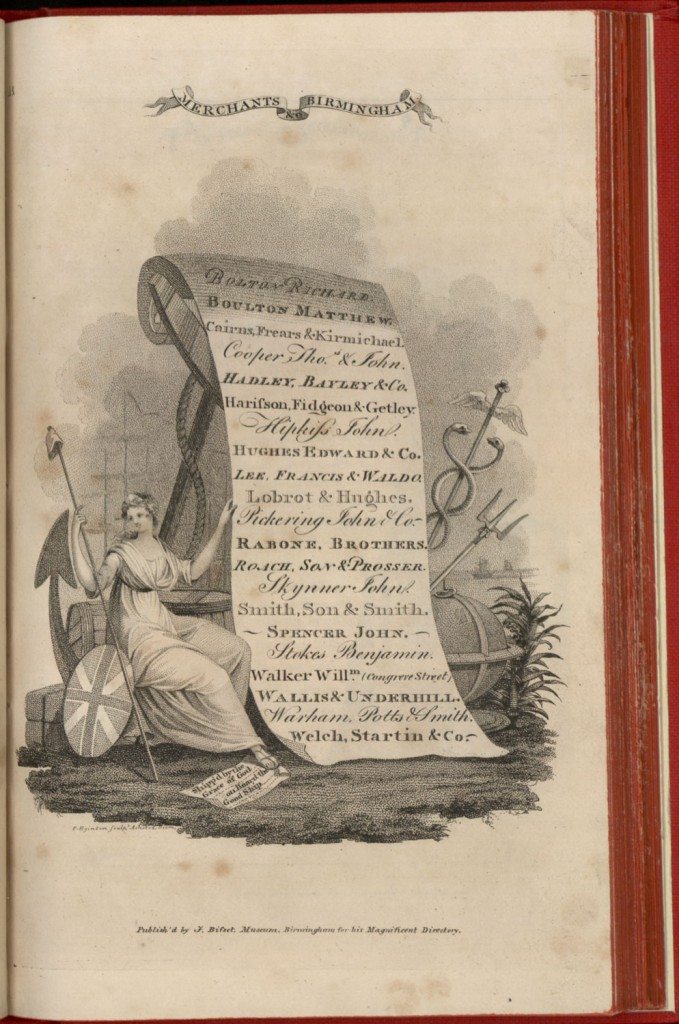 MERCHANTS &C BIRMINGHAM
BOLTON RICHARD.
BOULTON MATTHEW.
Cairns, Frears & Kirmichael.
Cooper Tho.s & John.
HADLEY, BAYLEY & Co.
Harisson, Fidgeon & Getley.
Hipkiss John.
HUGHES EDWARD & Co.
LEE, FRANCIS & WALDO.
Lobrot & Hughes.
Pickering John & Co.
RABONE, BROTHERS.
ROACH, SON & PROSSER.
Skynner John.
Smith, Son & Smith.
~ SPENCER JOHN. ~
Stokes Benjamin.
Walker Will.m (Congreve Street)
WALLIS & UNDERHILL.
Warham, Potts & Smith.
Welch, Startin & Co.
Shipp'd by the
Grace of God
on Board the
Good Ship
Publish'd by J. Bisset, Museum, Birmingham for his Magnificent Directory.